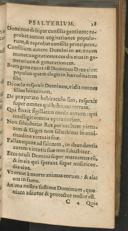 PSALTERIVM. 28
Dominus dissipat consilia gentium: re-
probat autem cogitationes populo-
rum, & reprobat consilia principum.
Consilium autem Domini in aeternum
manet: cogitationes cordis eius in ge-
neratione & generationem.
Beata gens cuius est Dominus Deus eius:
populus quem elegit in haereditatem
sibi.
De caelo respexit Dominus, vidit omnes
filios hominum.
De praeparato habitaculo suo, respexit
super omnes qui habitant terram.
Qui finxit sigillatim corda eorum: qui
intelligit omnia opera eorum.
Non saluatur Rex per multam virtu-
tem: & Gigas non saluabitur in mul-
titudine virtutis suae.
Fallax equus ad salutem: in abundantia
autem virtutis suae non saluabitur.
Ecce oculi Domini super metuentes eum:
& in eis qui sperant super misericordia
eius.
Vt eruat à morte animas eorum: & alat
eos in fame.
Anima nostra sustinet Dominum: quo-
niam adiutor & protector noster est.